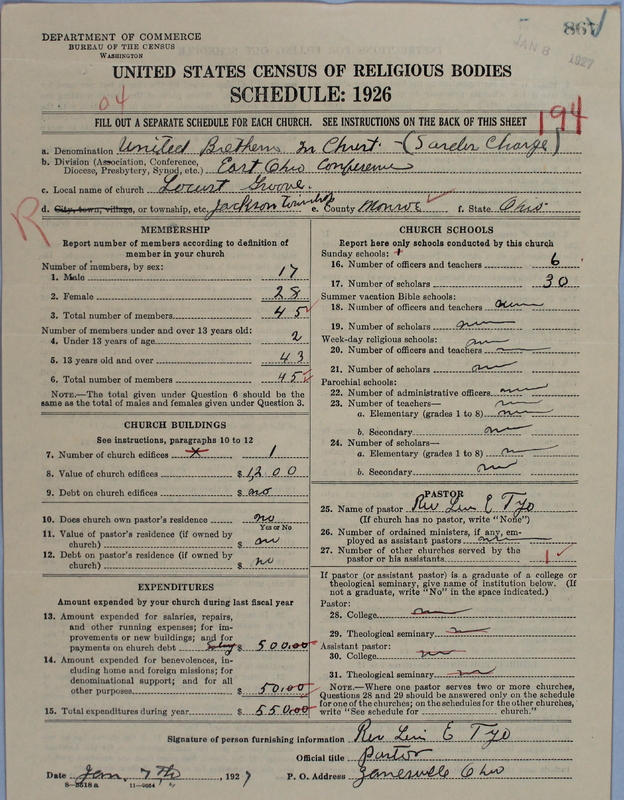 867
JAN 8 1927
DEPARTMENT OF COMMERCE
BUREAU OF THE CENSUS
WASHINGTON
UNITED STATES CENSUS OF RELIGIOUS BODIES
SCHEDULE: 1926
04
194
FILL OUT A SEPARATE SCHEDULE FOR EACH CHURCH. SEE INSTRUCTIONS ON THE BACK OF THIS SHEET
a. Denomination United Brethern In Christ - (Sarder Charge)
b. Division (Association, Conference, Diocese, Presbytery, Synod, etc.) East Ohio Conference
c. Local name of church Locust Groove.
d. City, town, village, or township, etc. Jackson Township e. County Monroe f. State Ohio
R
MEMBERSHIP
Report number of members according to definition of
member in your church
Number of members, by sex:
1. Male 17
2. Female 28
3. Total number of members 45
Number of members under and over 13 years old:
4. Under 13 years of age 2
5. 13 years old and over 43
6. Total number of members 45
NOTE.—The total given under Question 6 should be
same as the total of males and females given under Question 3.
CHURCH BUILDINGS
See instructions, paragraphs 10 to 12
7. Number of church edifices 1
8. Value of church edifices $ 1200
9. Debt on church edifices $ no
10. Does church own pastor's residence no
Yes or No
11. Value of pastor's residence (if owned by
church) $ no
12. Debt on pastor's residence (if owned by
church) $ no
EXPENDITURES
Amount expended by your church during last fiscal year
13. Amount expended for salaries, repairs,
and other running expenses; for im-
provements or new buildings; and for
payments on church debt $ 500.00
14. Amount expended for benevolences, in-
cluding home and foreign missions; for
denominational support; and for all
other purposes $ 50.00
15. Total expenditures during year $ 550.00
CHURCH SCHOOLS
Report here only schools conducted by this church
Sunday schools:
16. Number of officers and teachers 6
17. Number of scholars 30
Summer vacation Bible schools:
18. Number of officers and teachers
19. Number of scholars
Week-day religious schools:
20. Number of officers and teachers
21. Number of scholars
Parochial schools:
22. Number of administrative officers
23. Number of teachers—
a. Elementary (grades 1 to 8)
b. Secondary
24. Number of scholars—
a. Elementary (grades 1 to 8)
b. Secondary
PASTOR
25. Name of pastor Rev Levi E Tyo
(If church has no pastor, write "None")
26. Number of ordained ministers, if any, em-
ployed as assistant pastors
27. Number of other churches served by the
pastor or his assistants 1
If pastor (or assistant pastor) is a graduate of a college or
theological seminary, give name of institution below. (If
not a graduate, write "No" in the space indicated.)
Pastor:
28. College
29. Theological seminary
Assistant pastor:
30. College
31. Theological seminary
NOTE.—Where one pastor serves two or more churches,
Questions 28 and 29 should be answered only on the schedule
for one of the churches; on the schedules for the other churches,
write "See schedule for church."
Signature of person furnishing information Rev Levi E Tyo
Official title Pastor
Date Jan. 7th, 1927 P. O. Address Zanesville Ohio
8-5518a 11-9664